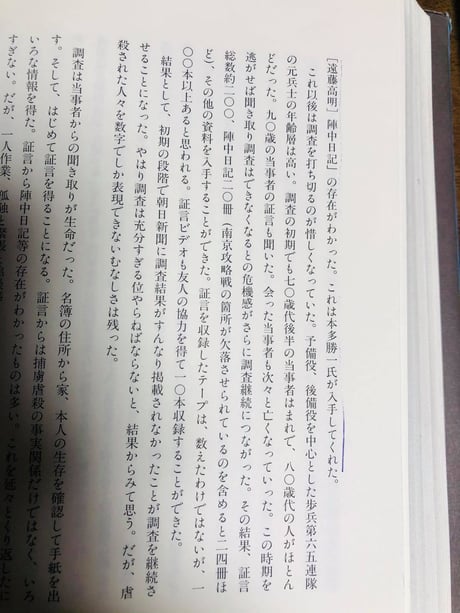 ［遠藤高明］陣中日記」の存在がわかった。これは本多勝一氏が入手してくれた。
これ以後は調査を打ち切るのが惜しくなっていた。予備役、後備役を中心とした歩兵第六五連隊
の元兵士の年齢層は高い。調査の初期でも七〇歳代後半の当事者はまれで、八〇歳代の人がほとん
どだった。九〇歳の当事者の証言も聞いた。会った当事者も次々と亡くなっていった。この時期を
逃がせば聞き取り調査はできなくなるとの危機感がさらに調査継続につながった。その結果、証言
総数約二〇〇、陣中日記二〇冊（南京攻略戦の箇所が欠落させられているのを含めると二四冊ほ
ど）、その他の資料を入手することができた。証言を収録したテープは、数えたわけではないが、一
〇〇本以上あると思われる。証言ビデオも友人の協力を得て一〇本収録することができた。
結果として、初期の段階で朝日新聞に調査結果がすんなり掲載されなかったことが調査を継続さ
せることになった。やはり調査は充分すぎる位やらねばならないと、結果からみて思う。だが、虐
殺された人々を数字でしか表現できないむなしさは残った。
調査は当事者からの聞き取りが生命だった。名簿の住所から家、本人の生存を確認して手紙を出
す。そして、はじめて証言を得ることになる。証言からは捕虜虐殺の事実関係だけではなく、いろ
いろな情報を得た。証言から陣中日記等の存在がわかったものは多い。これを延々とくり返したに
すぎない。だが、一人作業、孤独と